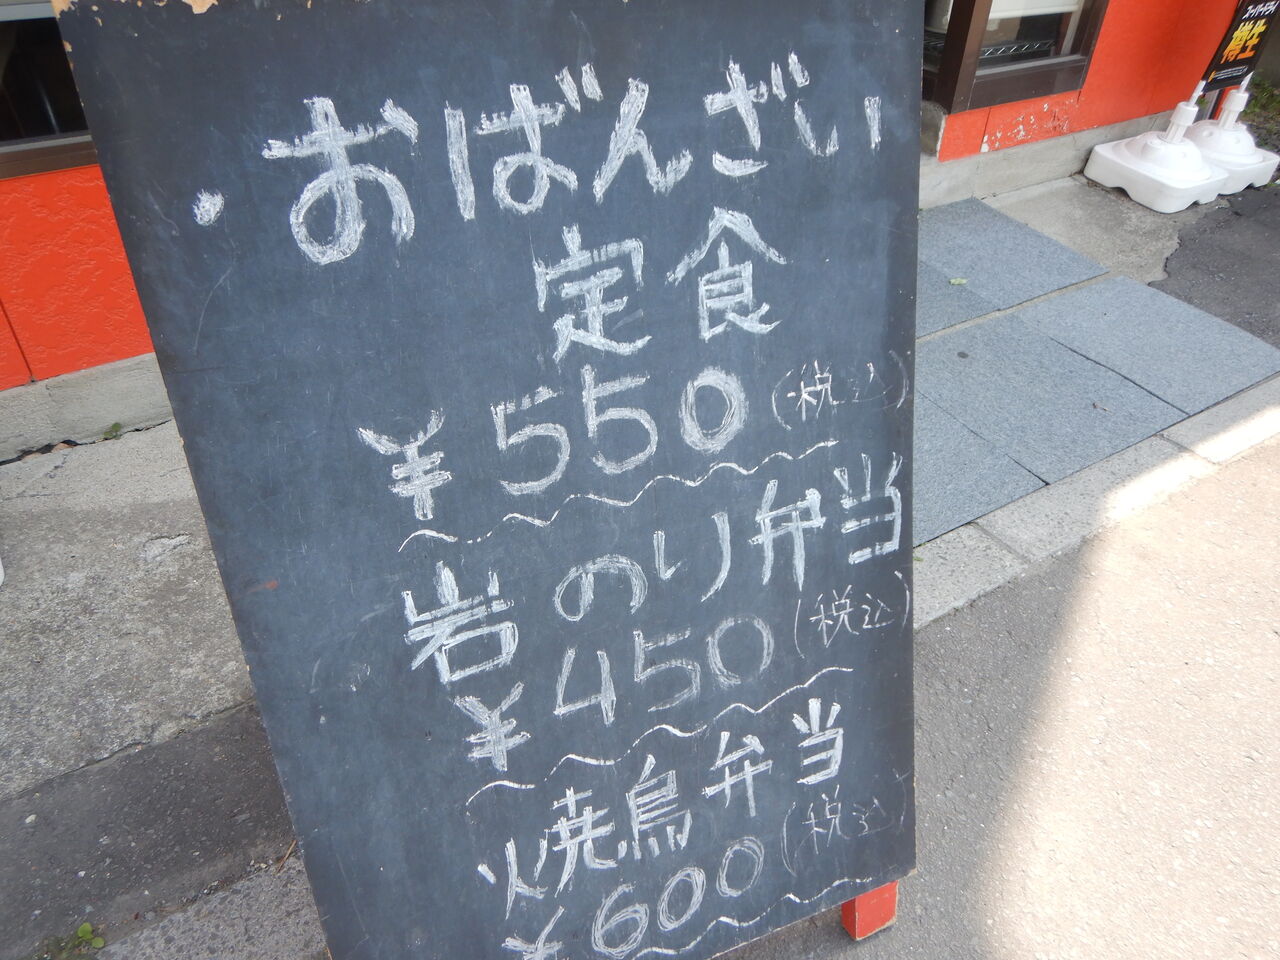 ・おばんざい
定食
¥550(税込)
岩のり弁当
¥450(税込)
焼鳥弁当
¥600(税込)
スーパードライ
樽生